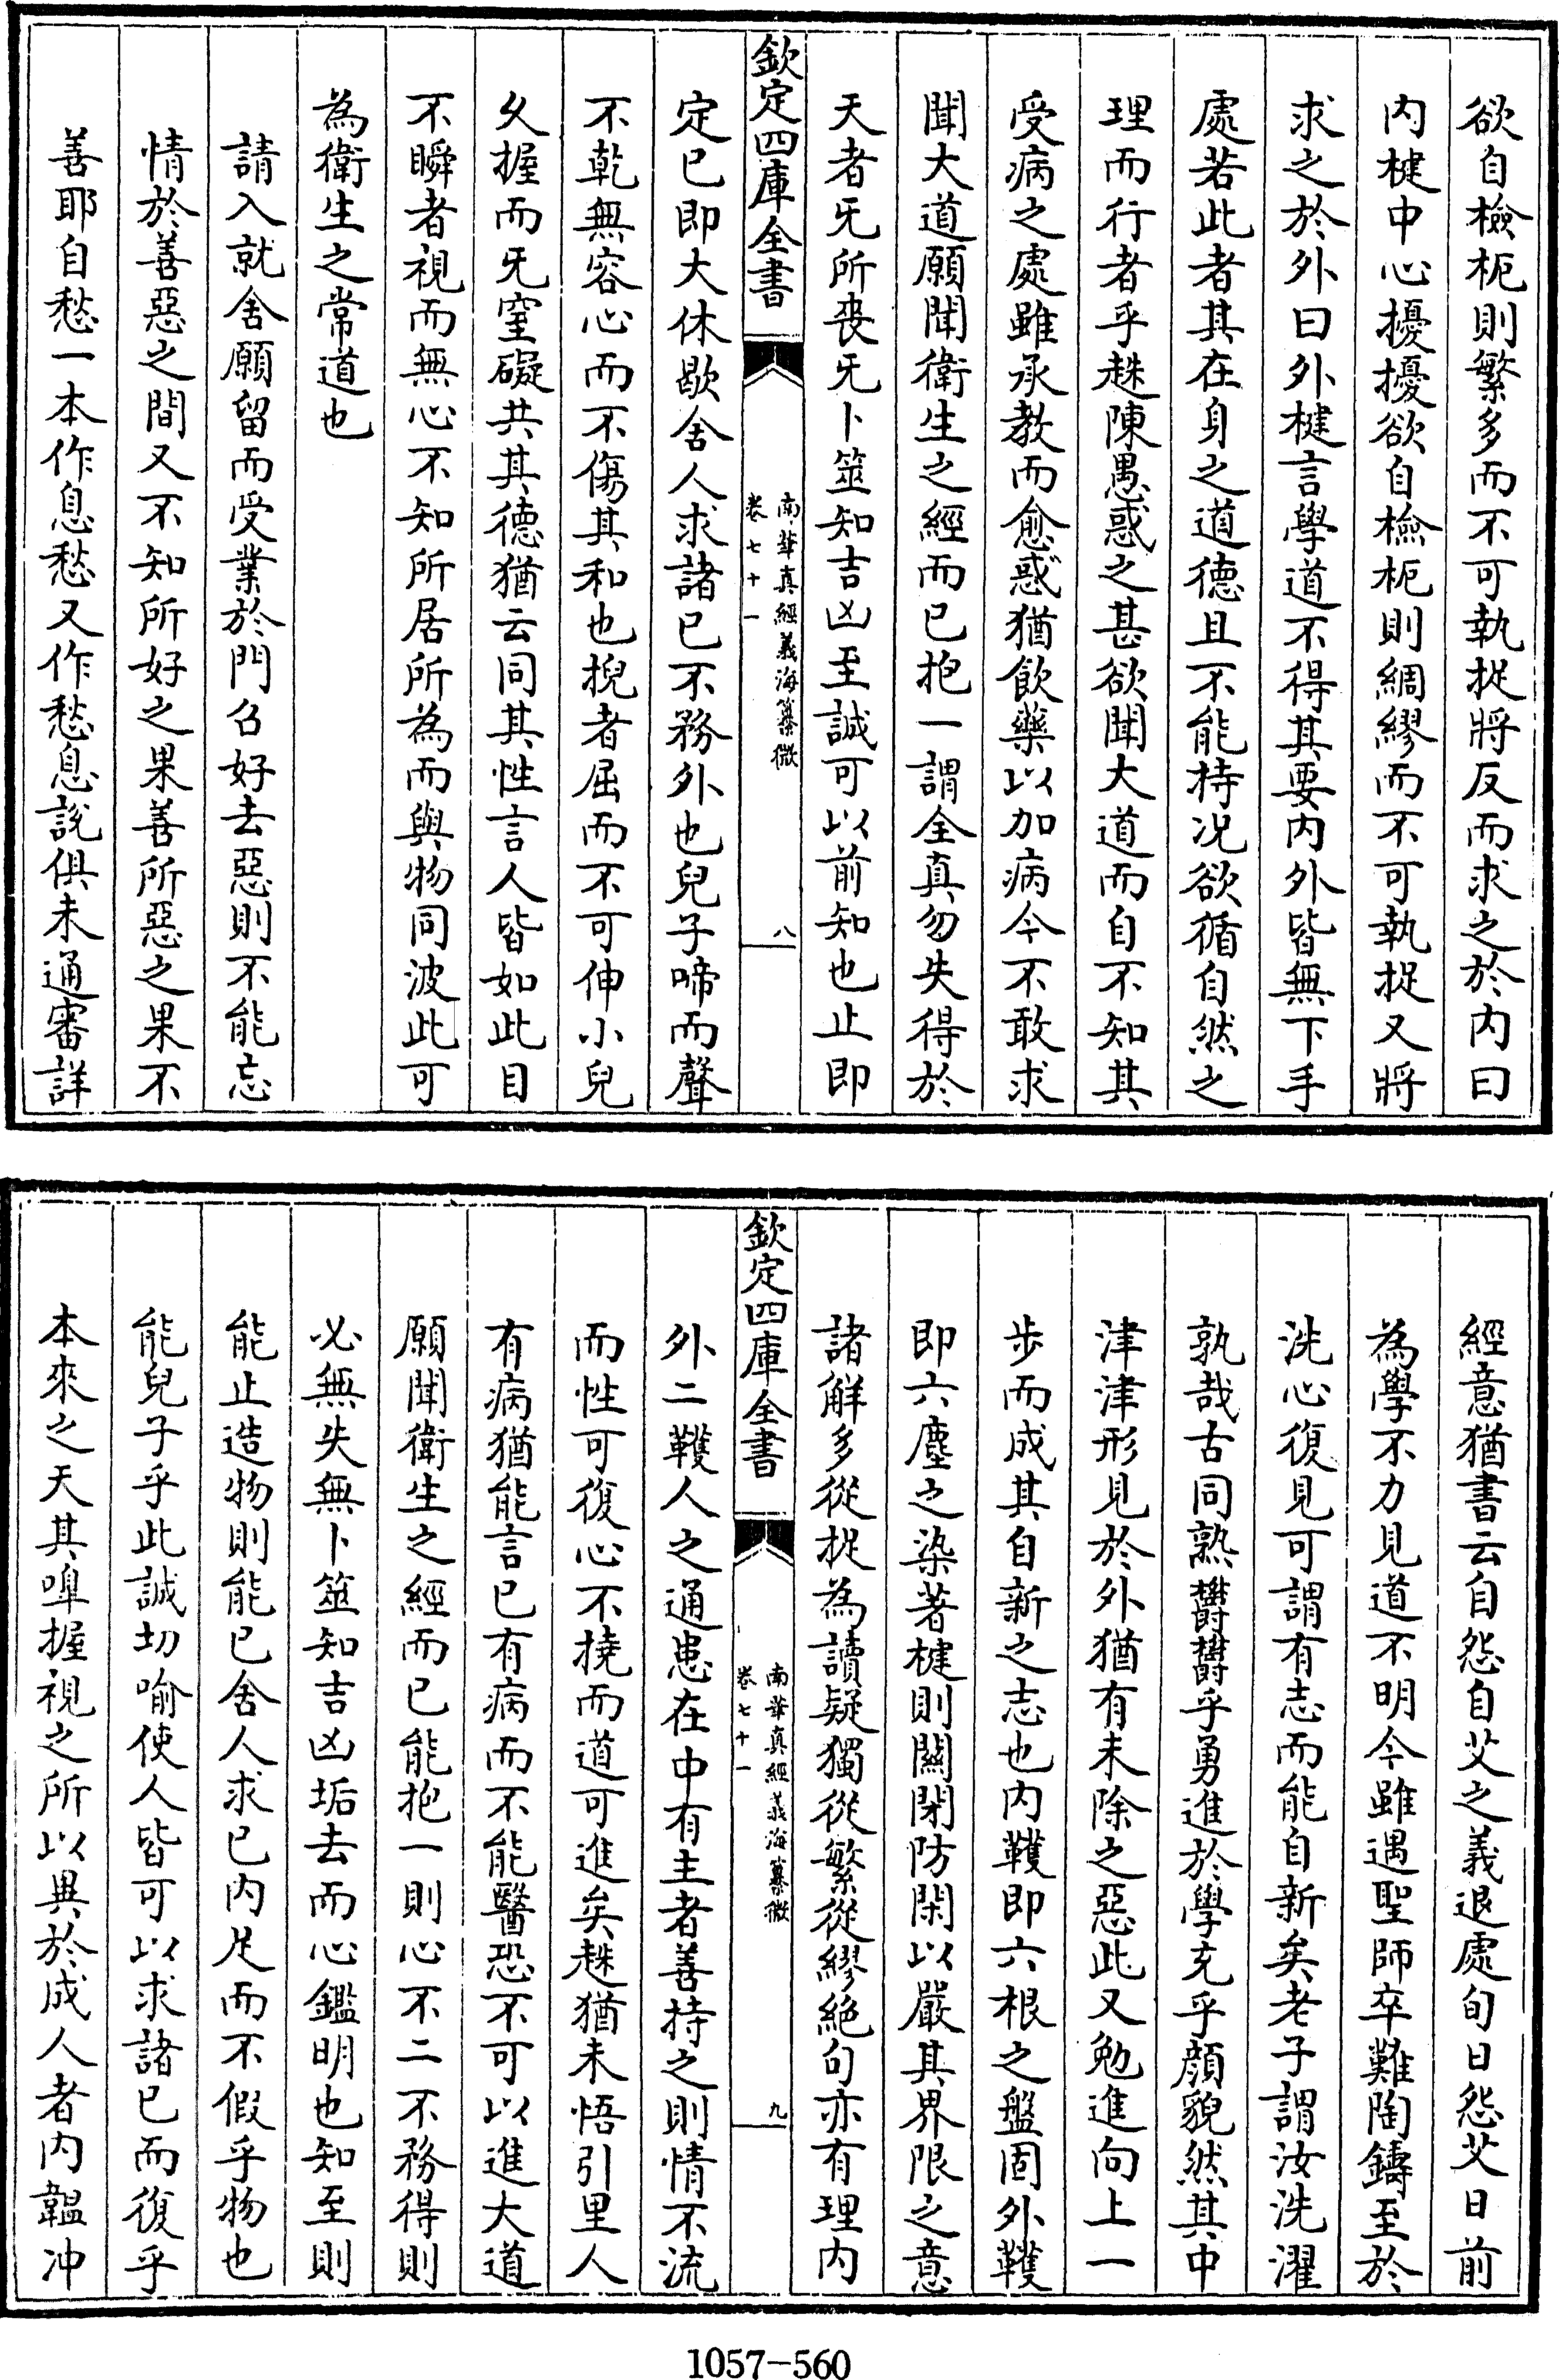 欲自檢柅則繁多而不可執捉將反而求之於内曰
内楗中心擾擾欲自檢柅則綢繆而不可執捉又將
求之於外曰外楗言學道不得其要内外皆無下手
處若此者其在身之道德且不能持況欲循自然之
理而行者乎趎陳愚惑之甚欲聞大道而自不知其
受病之處雖承教而愈惑猶飲藥以加病今不敢求
聞大道願聞衛生之經而已抱一謂全真勿失得於
天者旡所喪旡卜筮知吉凶至誠可以前知也止即
欽定四庫全書
南華真經義海纂微
卷七十一
八
定已即大休歇舍人求諸已不務外也兒子啼而聲
不乾無容心而不傷其和也掜者屈而不可伸小兒
乆握而旡窒礙共其德猶云同其性言人皆如此目
不瞬者視而無心不知所居所為而與物同波此可
為衛生之常道也
請入就舍願留而受業於門召好去惡則不能忘
情於善惡之間又不知所好之果善所惡之果不
善耶自愁一本作息愁又作愁息説俱未通審詳
經意猶書云自怨自艾之義退處旬日怨艾日前
為學不力見道不明今雖遇聖師卒難陶鑄至於
洗心復見可謂有志而能自新矣老子謂汝洗濯
孰哉古同熟欝欝乎勇進於學充乎顔貌然其中
津津形見於外猶有未除之惡此又勉進向上一
步而成其自新之志也内韄即六根之盤固外韄
即六塵之染著楗則關閉防閑以嚴其界限之意
諸解多從捉為讀疑獨從繁從繆絶句亦有理内
欽定四庫全書
南華真經義海纂微
卷七十一
九
外二韄人之通患在中有主者善持之則情不流
而性可復心不撓而道可進矣趎猶未悟引里人
有病猶能言已有病而不能醫恐不可以進大道
願聞衛生之經而已能抱一則心不二不務得則
必無失無卜筮知吉凶垢去而心鑑明也知至則
能止造物則能已舍人求已内足而不假乎物也
能兒子乎此誠切喻使人皆可以求諸已而復乎
本來之天其嘷握視之所以異於成人者内韞冲
1057-560